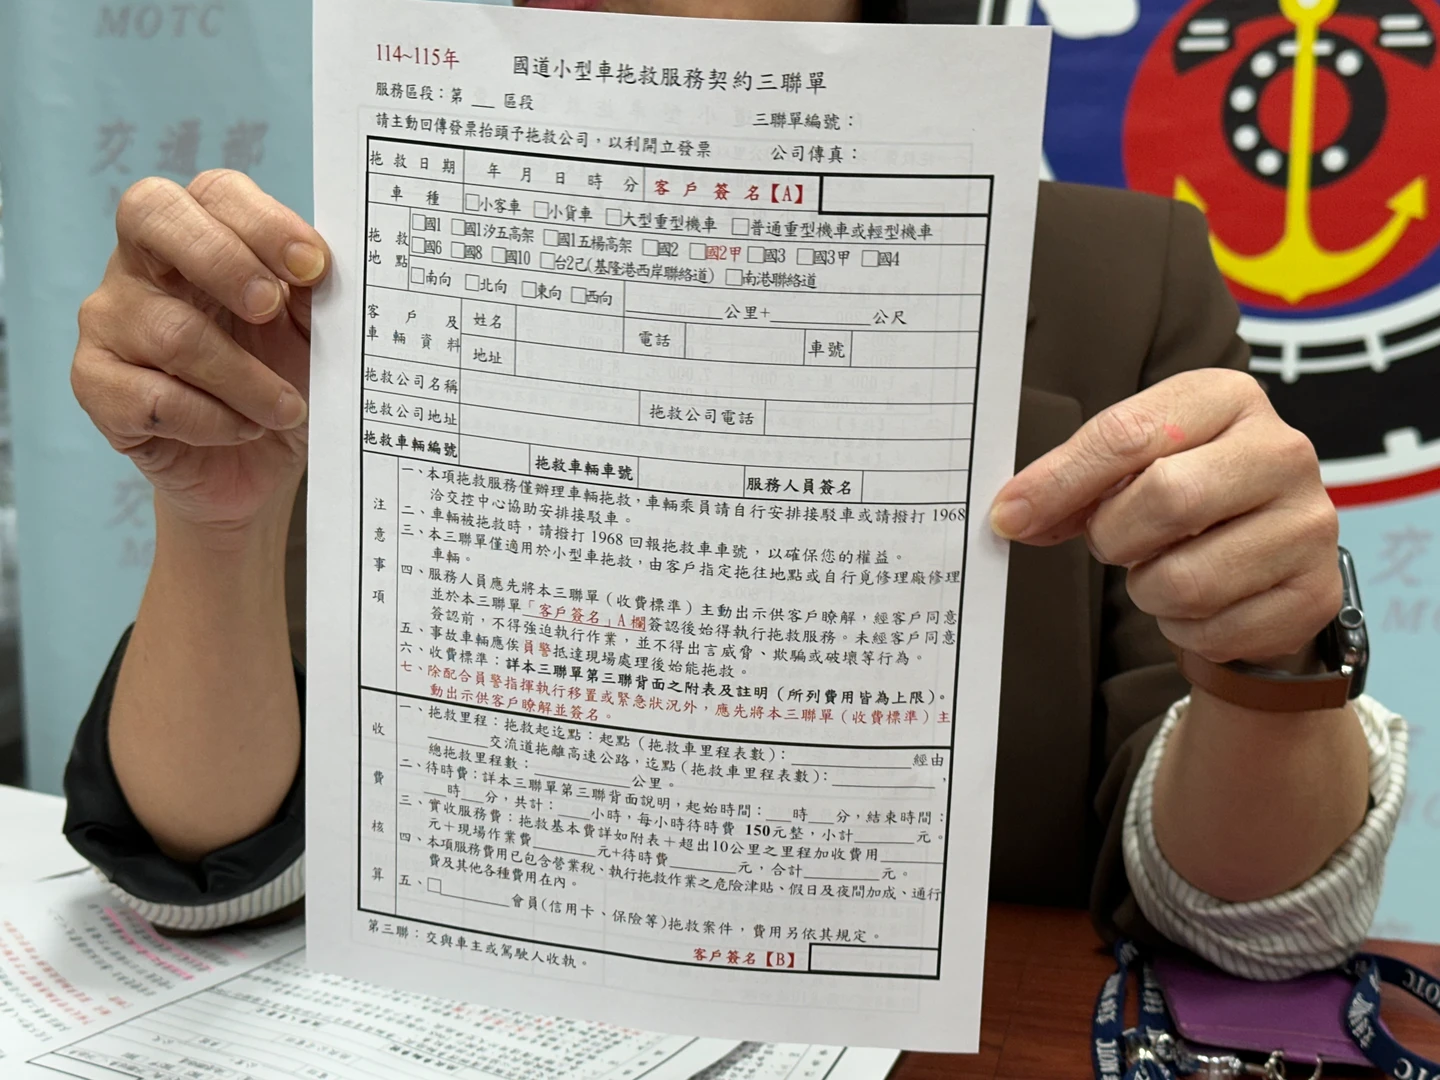 MOTC
交通部
114~115年
國道小型車拖救服務契約三聯單
服務區段：第 ___ 區段
三聯單編號：
請主動回傳發票抬頭予拖救公司，以利開立發票
公司傳真：
拖救日期 年 月 日 時 分 客戶簽名【A】
車種 □小客車 □小貨車 □大型重型機車 □普通重型機車或輕型機車
拖救地點 □國1 □國1汐五高架 □國1五楊高架 □國2 □國2甲 □國3 □國3甲 □國4
□國6 □國8 □國10 □台2己(基隆港西岸聯絡道) □南港聯絡道
□南向 □北向 □東向 □西向 ________公里+________公尺
客戶及車輛資料 姓名 電話 車號
地址
拖救公司名稱
拖救公司地址 拖救公司電話
拖救車輛編號 拖救車輛車號 服務人員簽名
注意事項
一、本項拖救服務僅辦理車輛拖救，車輛乘員請自行安排接駁車或請撥打1968
洽交控中心協助安排接駁車。
二、車輛被拖救時，請撥打1968回報拖救車車號，以確保您的權益。
三、本三聯單僅適用於小型車拖救，由客戶指定拖往地點或自行覓修理廠修理
車輛。
四、服務人員應先將本三聯單（收費標準）主動出示供客戶瞭解，經客戶同意
並於本三聯單「客戶簽名」A欄簽認後始得執行拖救服務。未經客戶同意
簽認前，不得強迫執行作業，並不得出言威脅、欺騙或破壞等行為。
五、事故車輛應俟員警抵達現場處理後始能拖救。
六、收費標準：詳本三聯單第三聯背面之附表及註明（所列費用皆為上限）。
七、除配合員警指揮執行移置或緊急狀況外，應先將本三聯單（收費標準）主
動出示供客戶瞭解並簽名。
收費核算
一、拖救里程：拖救起迄點：起點（拖救車里程表數）：________經由
________交流道拖離高速公路，迄點（拖救車里程表數）：________，
總拖救里程數：________公里。
二、待時費：詳本三聯單第三聯背面說明，起始時間：___時___分，結束時間：
___時___分，共計：____小時，每小時待時費 150元整，小計______元。
三、實收服務費：拖救基本費詳如附表＋超出10公里之里程加收費用______
元＋現場作業費______元+待時費______元，合計______元。
四、本項服務費用已包含營業稅、執行拖救作業之危險津貼、假日及夜間加成、通行
費及其他各種費用在內。
五、□________會員(信用卡、保險等)拖救案件，費用另依其規定。
第三聯：交與車主或駕駛人收執。
客戶簽名【B】
交
MOTC